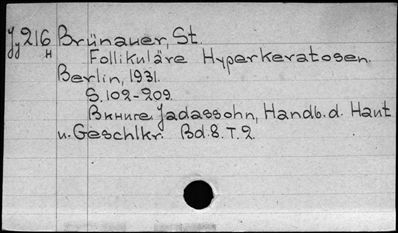 Jy 216 Brünauer, St.
н Follikuläre Hyperkeratosen.
Berlin, 1931.
S. 102-209.
В книге Jadassohn, Handb. d. Haut
u. Geschlkr. Bd. 8. T. 2.